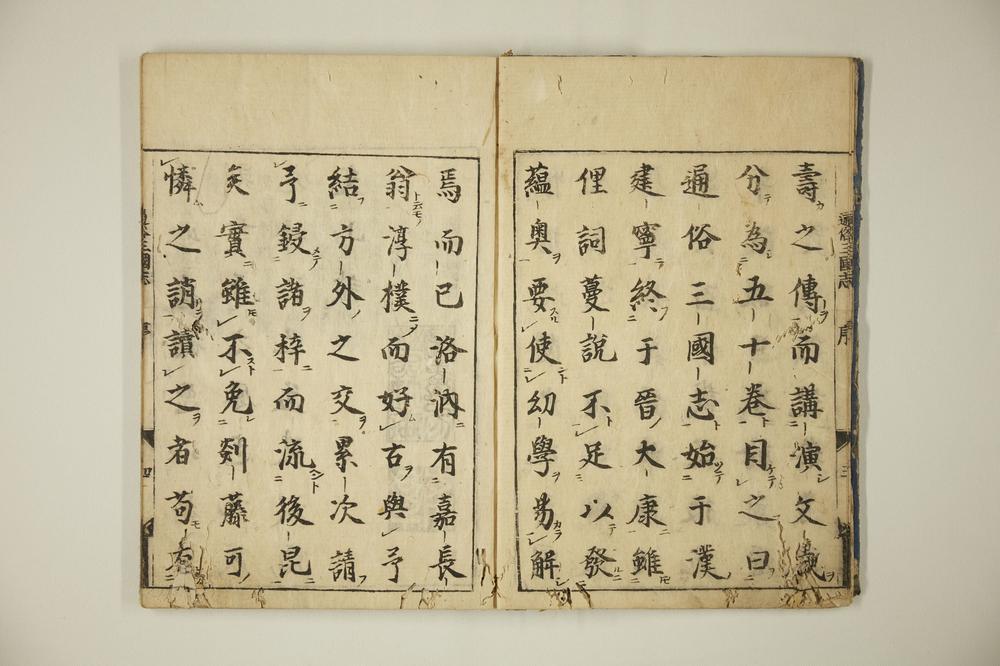 壽之傳而講演文義
分為五十卷目之曰
通俗三國志始于漢
建寧終于晉大康雖
俚詞蔓說不足以發
蘊奧要使幼學易解
焉而已洛汭有嘉長
翁淳樸而好古與予
結方外之交累次請
予鋟諸梓而流後昆
矣實雖不免剡藤可
憐之誚讀之者苟有
通俗三國志 序 三
通俗三國志 序 四